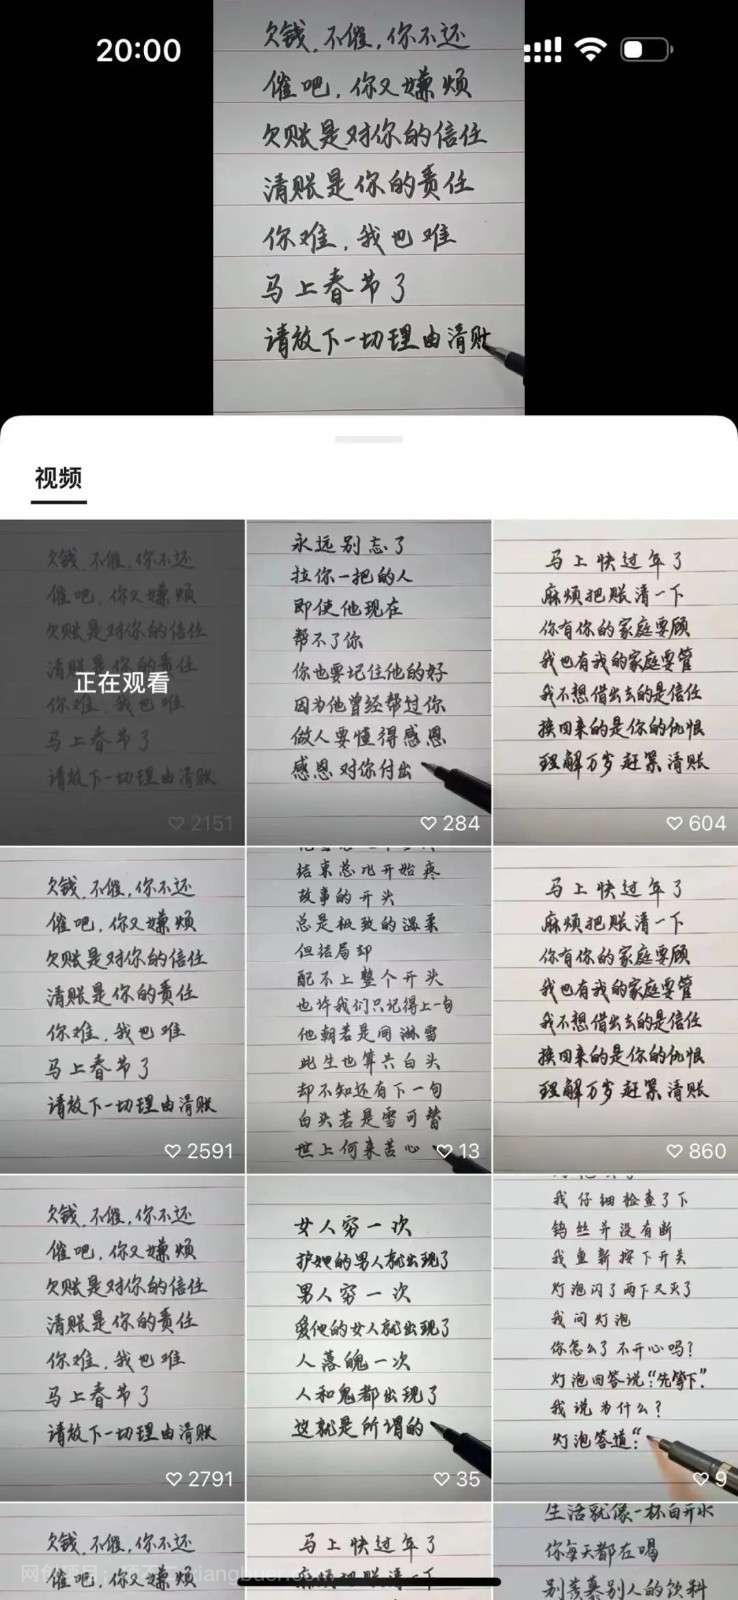 20:00
欠钱,不催,你不还
催吧,你又嫌烦
欠账是对你的信任
清账是你的责任
你难,我也难
马上春节了
请放下一切理由清账
视频
欠钱,不催,你不还
催吧,你又嫌烦
欠账是对你的信任
清账是你的责任
你难,我也难
马上春节了
请放下一切理由清账
正在观看
2151
永远别忘了
拉你一把的人
即使他现在
帮不了你
你也要记住他的好
因为他曾经帮过你
做人要懂得感恩
感恩对你付出
284
马上快过年了
麻烦把账清一下
你有你的家庭要顾
我也有我的家庭要管
我不想借出去的是信任
换回来的是你的仇恨
理解万岁赶紧清账
604
欠钱,不催,你不还
催吧,你又嫌烦
欠账是对你的信任
清账是你的责任
你难,我也难
马上春节了
请放下一切理由清账
2591
结束总比开始疼
故事的开头
总是极致的温柔
但结局却
配不上整个开头
也许我们只记得上一句
他朝若是同淋雪
此生也算共白头
却不知还有下一句
白头若是雪可替
世上何来苦心
13
马上快过年了
麻烦把账清一下
你有你的家庭要顾
我也有我的家庭要管
我不想借出去的是信任
换回来的是你的仇恨
理解万岁赶紧清账
860
欠钱,不催,你不还
催吧,你又嫌烦
欠账是对你的信任
清账是你的责任
你难,我也难
马上春节了
请放下一切理由清账
2791
女人穷一次
护她的男人就出现了
男人穷一次
爱他的女人就出现了
人落魄一次
人和鬼都出现了
这就是所谓的
35
我仔细检查了下
钨丝并没有断
我重新按下开关
灯泡闪了两下又灭了
我问灯泡
你怎么了不开心吗?
灯泡回答说:"先等下."
我说为什么?
灯泡答道:"
9
欠钱,不催,你不还
催吧,你又嫌烦
马上快过年了
麻烦把账清一下
生活就像一杯白开水
你每天都在喝
别羡慕别人的饮料